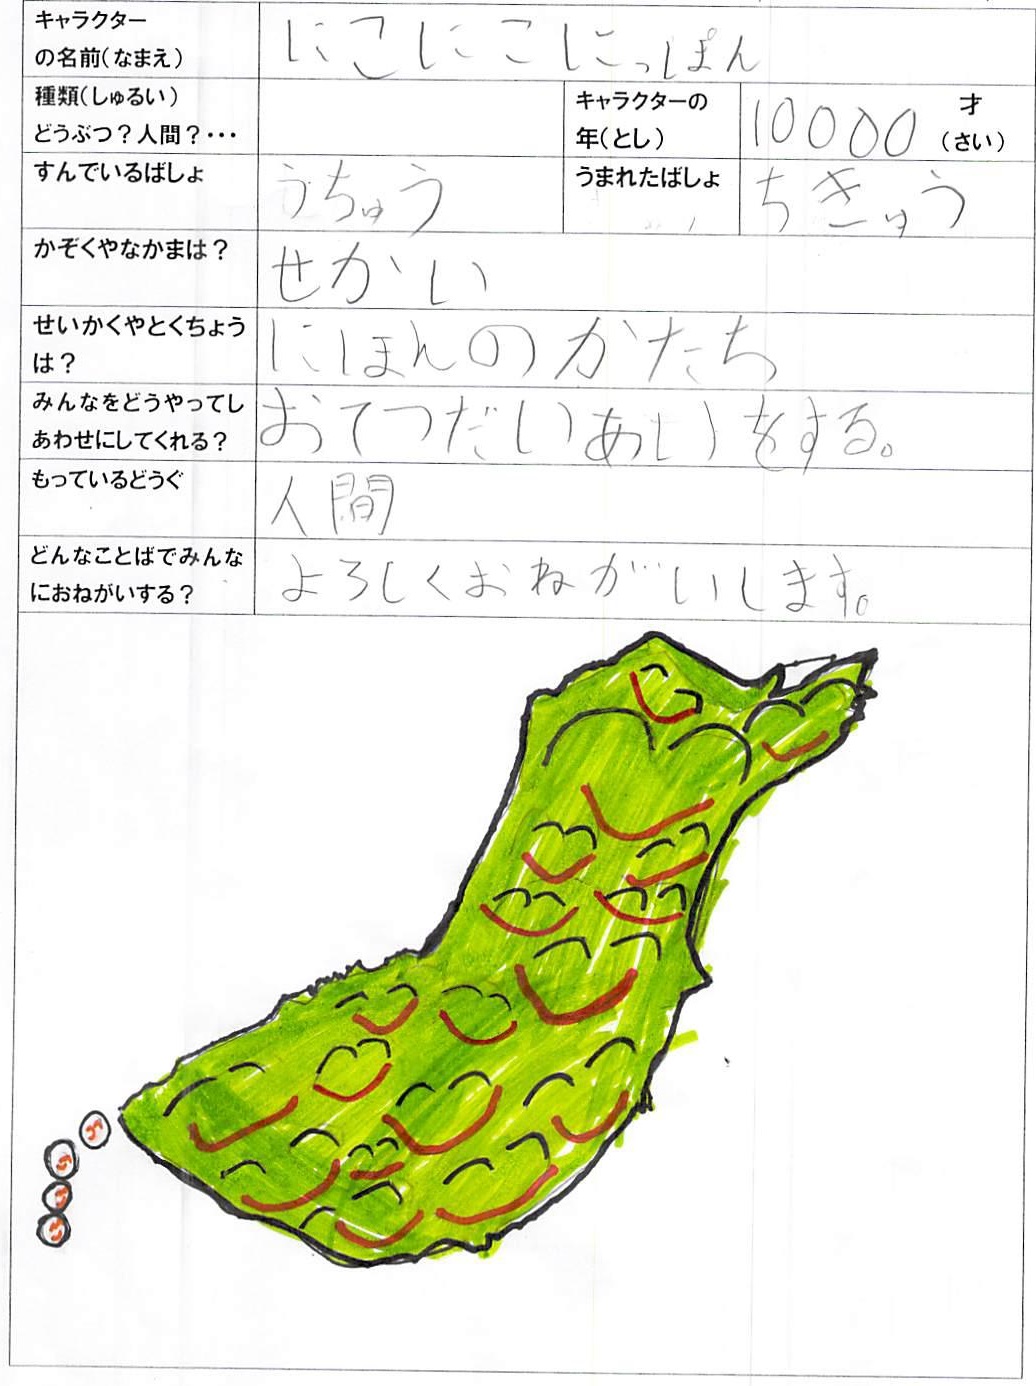 キャラクター
の名前(なまえ)
にこにこにっぽん
種類(しゅるい)
どうぶつ?人間?・・・
キャラクターの
年(とし)
10000
才
(さい)
すんでいるばしょ
うちゅう
うまれたばしょ
ちきゅう
かぞくやなかまは?
せかい
せいかくやとくちょう
は?
にほんのかたち
みんなをどうやってし
あわせにしてくれる?
おてつだいあいをする。
もっているどうぐ
人間
どんなことばでみんな
におねがいする?
よろしくおねがいします。